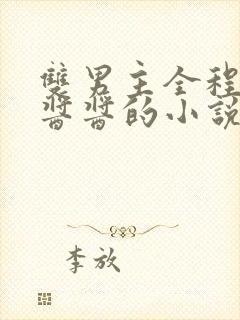 雙男主全程
醬醬的小說
李放